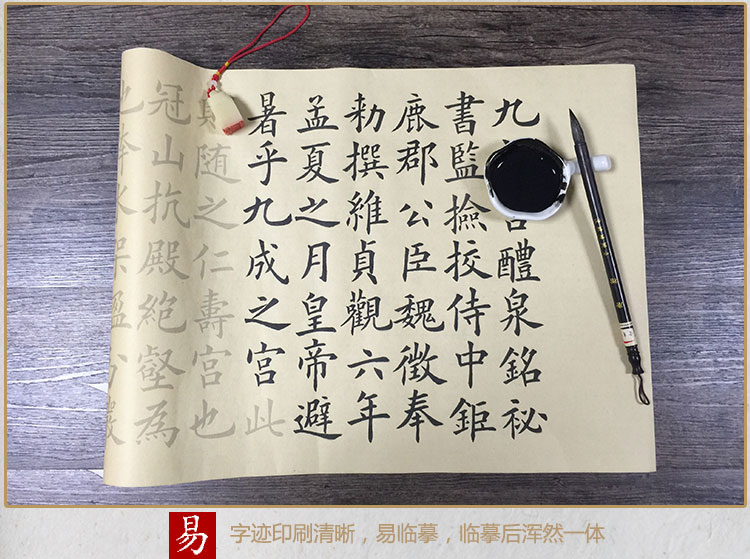 九醴泉銘祕
書監撿挍侍中鉅
鹿郡公臣魏徵奉
勑撰維貞觀六年
孟夏之月皇帝避
暑乎九成之宮此
随之仁壽宮也
冠山抗殿絶壑為
易
字迹印刷清晰，易临摹，临摹后浑然一体